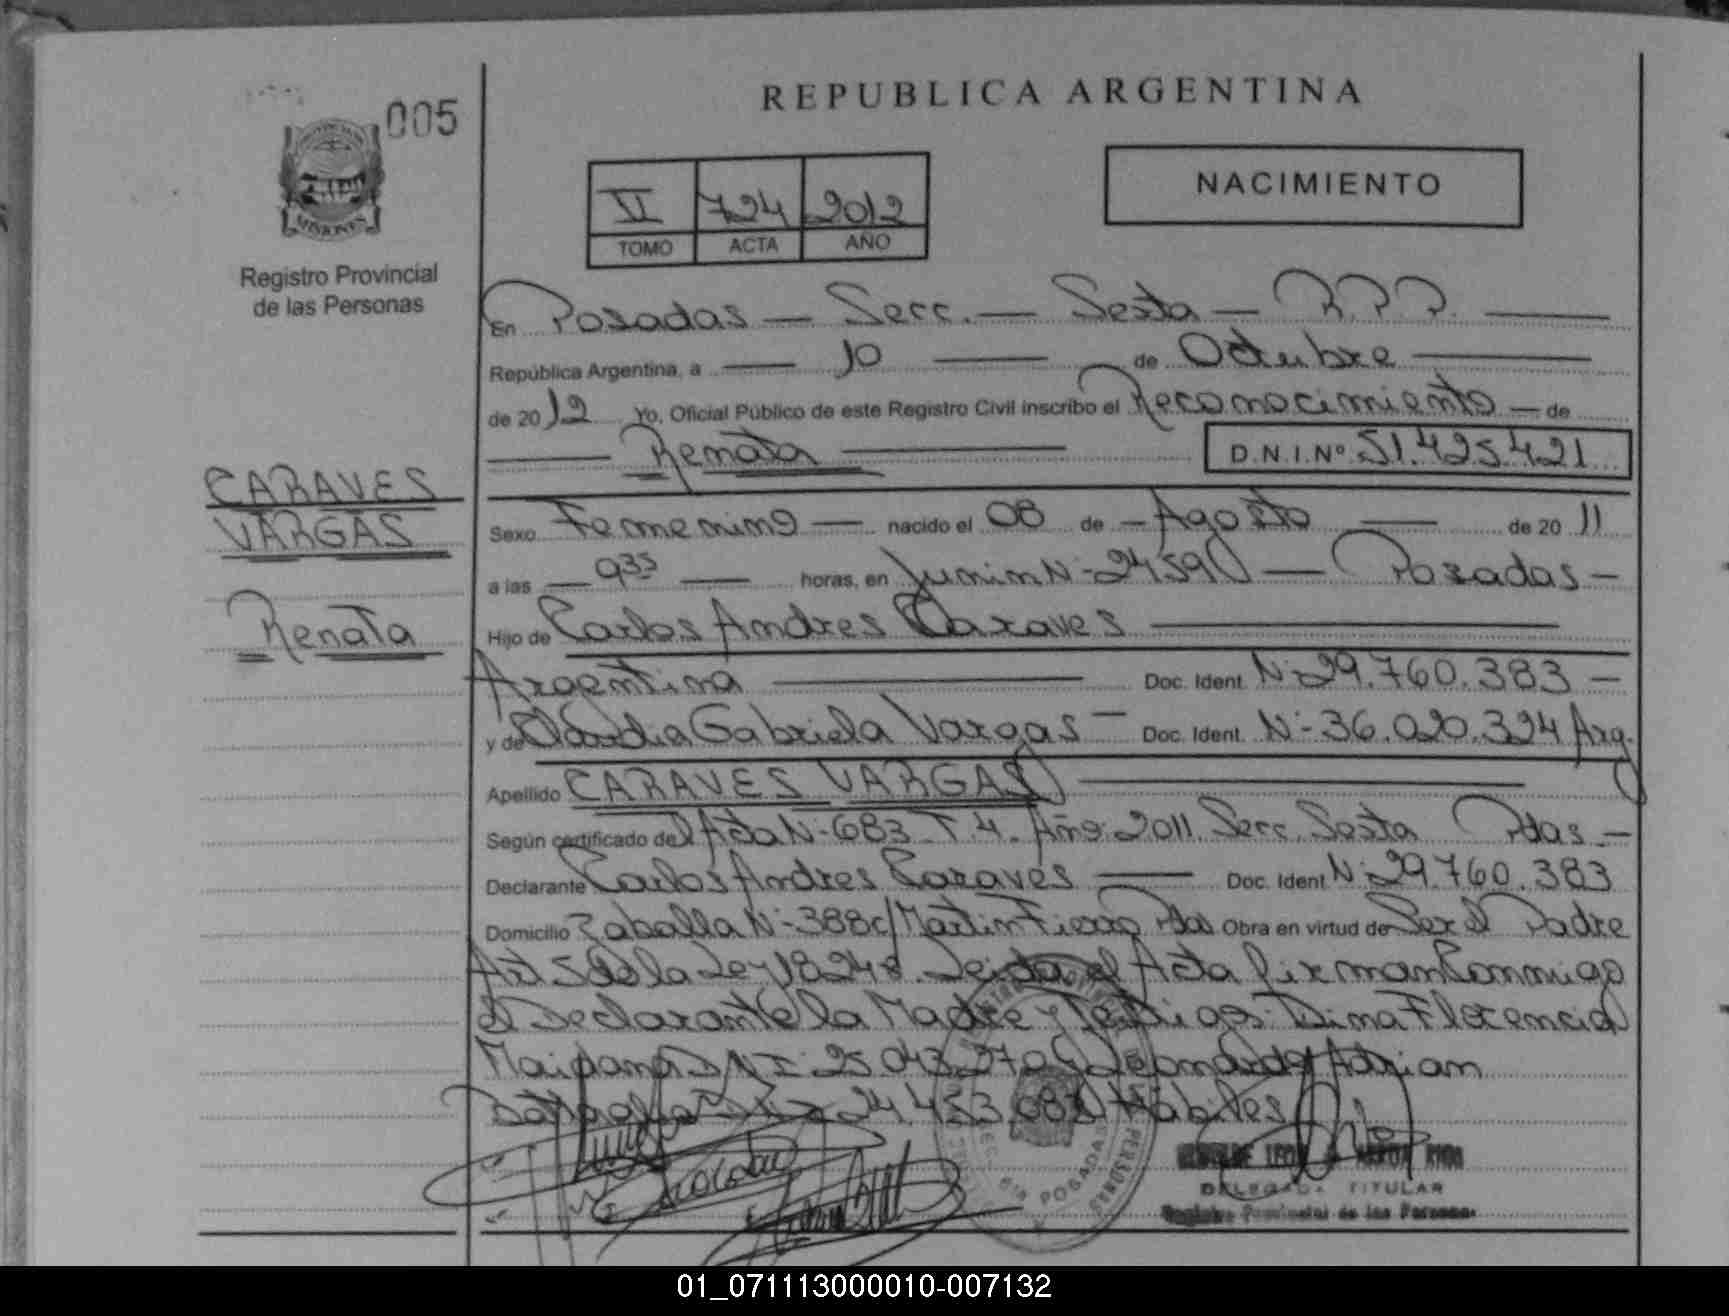 005
MISIONES
Registro Provincial
de las Personas
REPUBLICA ARGENTINA
VI 724 2012
TOMO ACTA AÑO
NACIMIENTO
En Posadas — Secc. — Sexta — R.P.P. —
República Argentina, a — 10 — de Octubre —
de 2012 Yo, Oficial Público de este Registro Civil inscribo el Reconocimiento — de
— Renata — D.N.I.Nº 51.425.421
CARAVES
VARGAS
Renata
Sexo Femenino — nacido el 08 de — Agosto — de 2011
a las — 9 35 — horas, en Junin N- 2459 — Posadas —
Hijo de Carlos Andres Caraves —
Argentina — Doc. Ident. N- 29.760.383 —
y de Claudia Gabriela Vargas — Doc. Ident. N- 36.020.324 Arg.
Apellido CARAVES VARGAS —
Según certificado del Acta N- 683 T. 4. Año: 2011. Secc. Sexta Pdas —
Declarante Carlos Andres Caraves — Doc. Ident N- 29.760.383
Domicilio Zaballa N- 388 c/ Martin Fierro Pdas Obra en virtud de Ser el Padre
Art 5 de la Ley 18248. Leida el Acta firman Conmigo
el Declarante la Madre y Testigos: Dima Florencia
Maidana DNI: 25.043.270 Leonardo Adrian
24.453.087 Habiles
POSADAS
DELEGADA TITULAR
Registro Provincial de las Personas
01_071113000010-007132